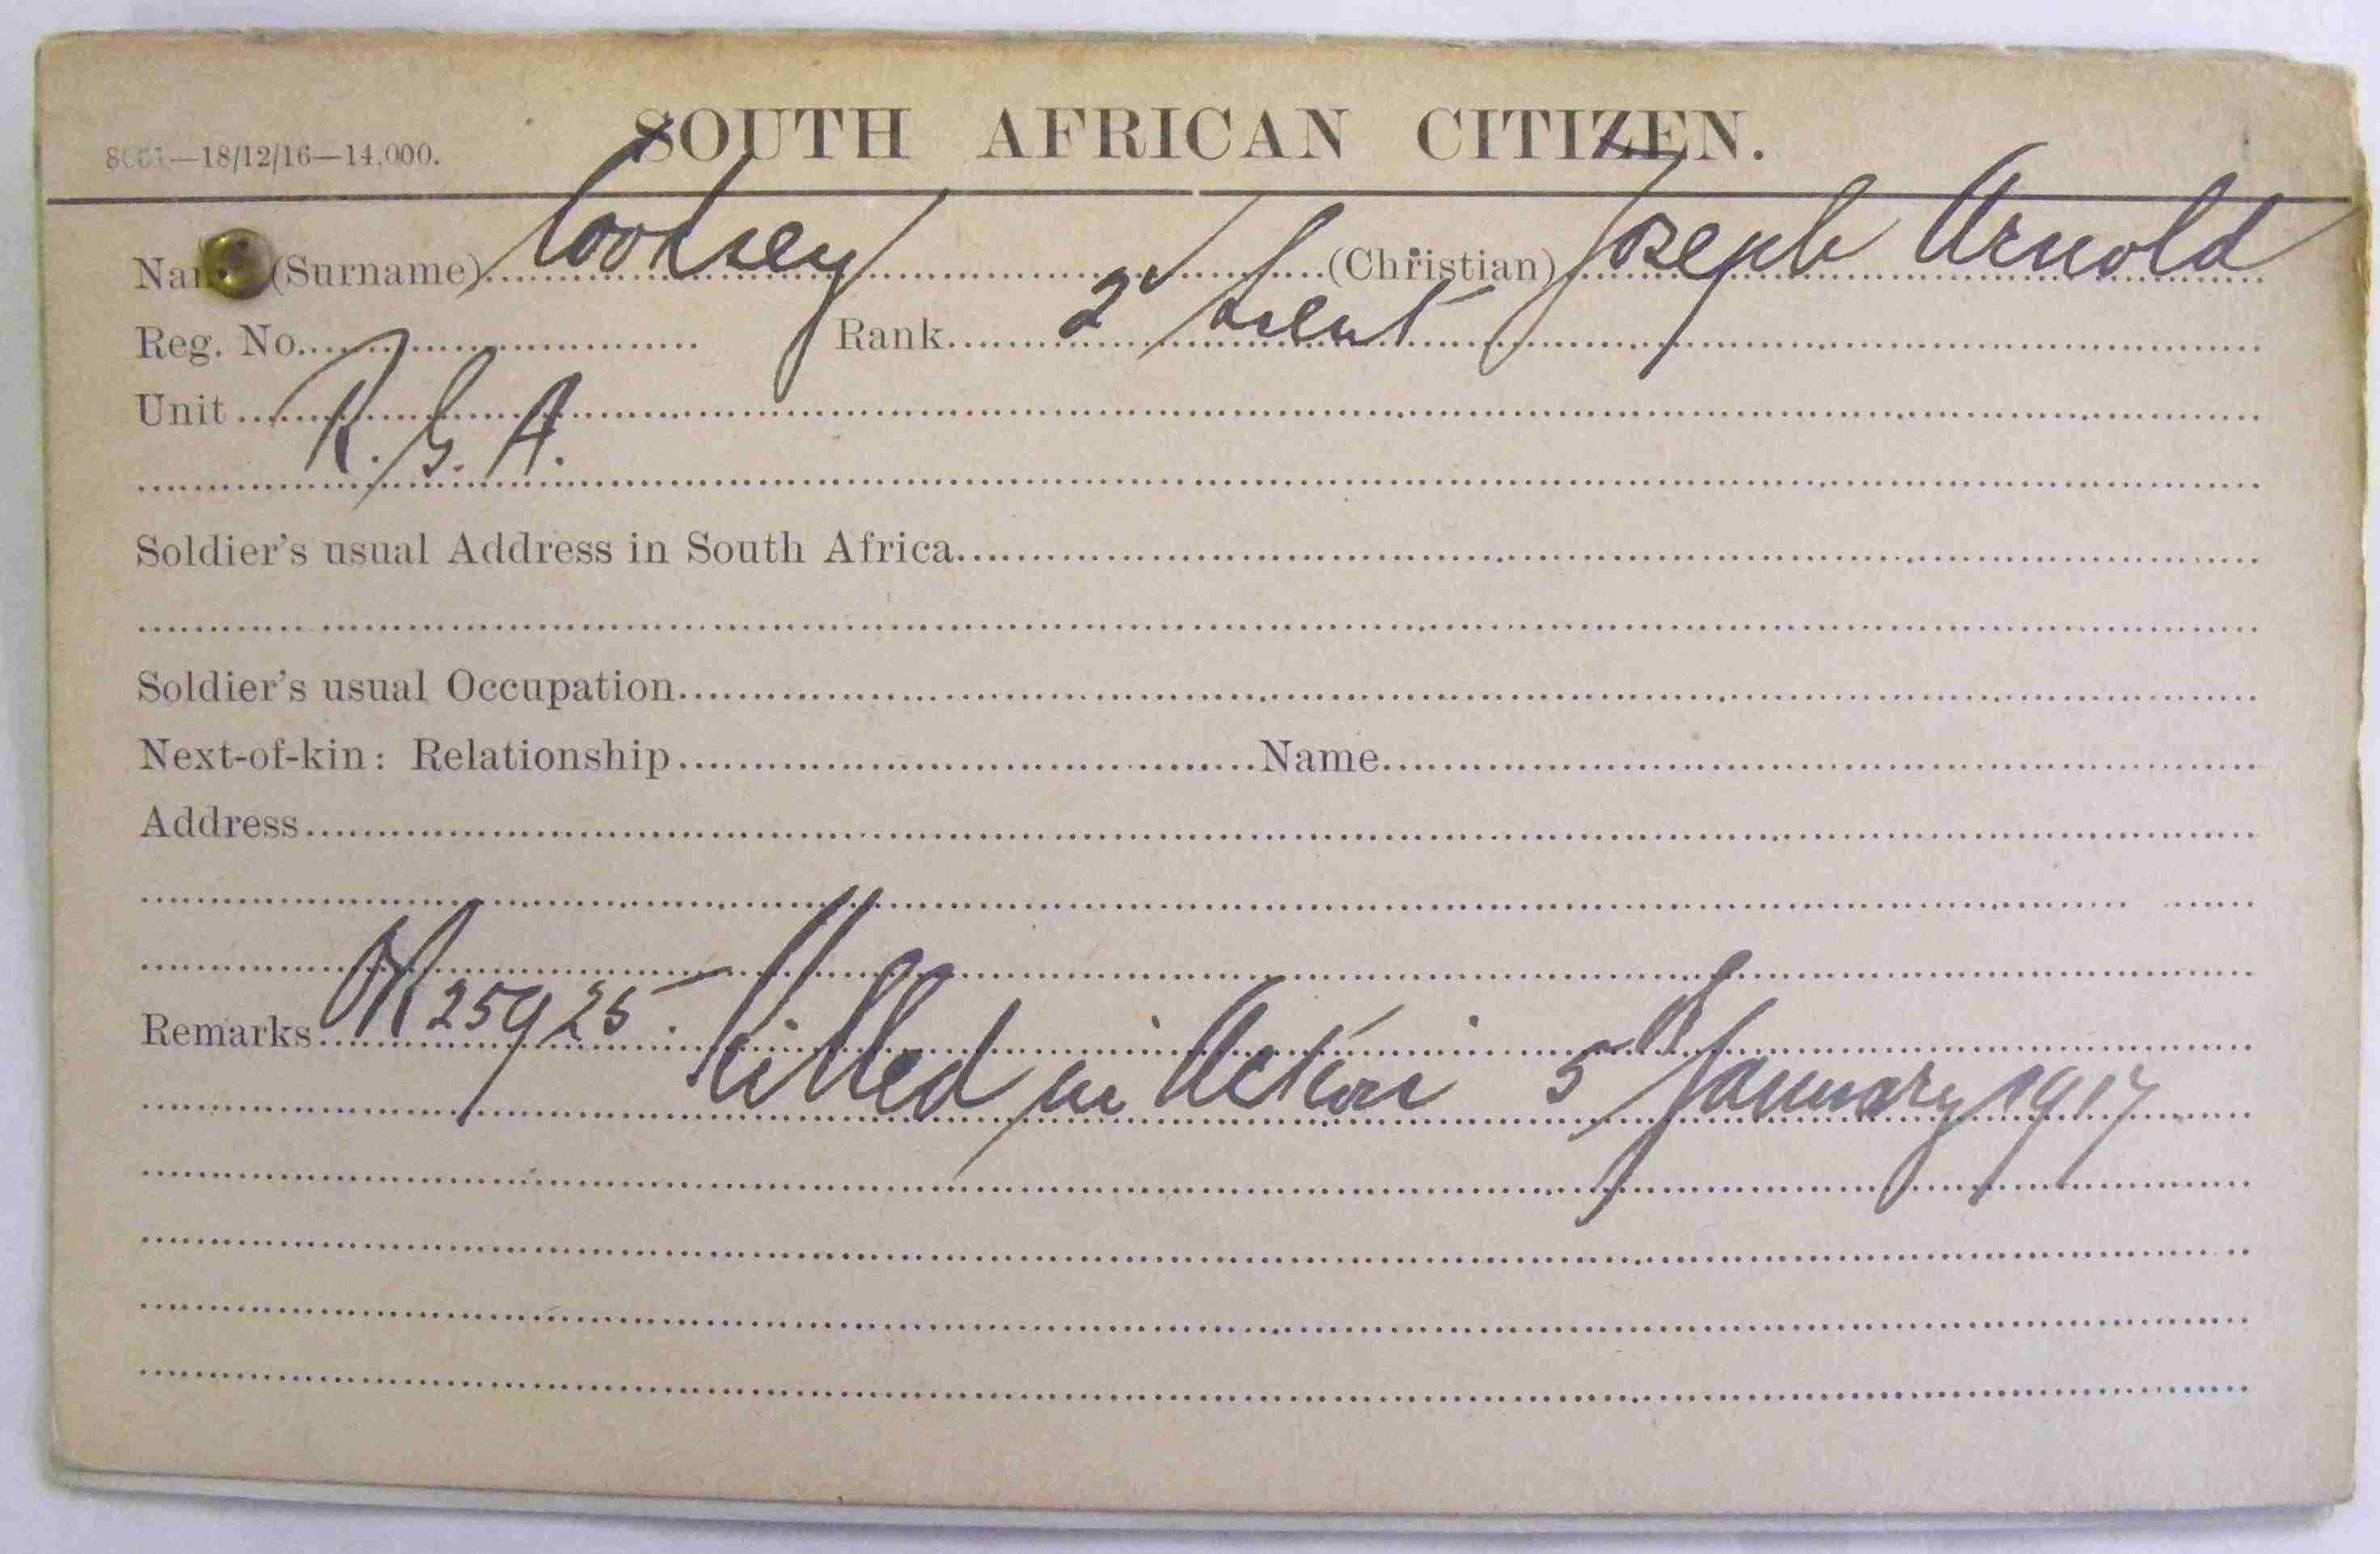 SOUTH AFRICAN CITIZEN.
—18/12/16—14,000.
(Surname) (Christian) Joseph Arnold
Reg. No. Rank 2d Lieut
Unit R.G.A.
Soldier's usual Address in South Africa
Soldier's usual Occupation
Next-of-kin: Relationship Name
Address
Remarks 25925. Killed in Action 5th January 1917